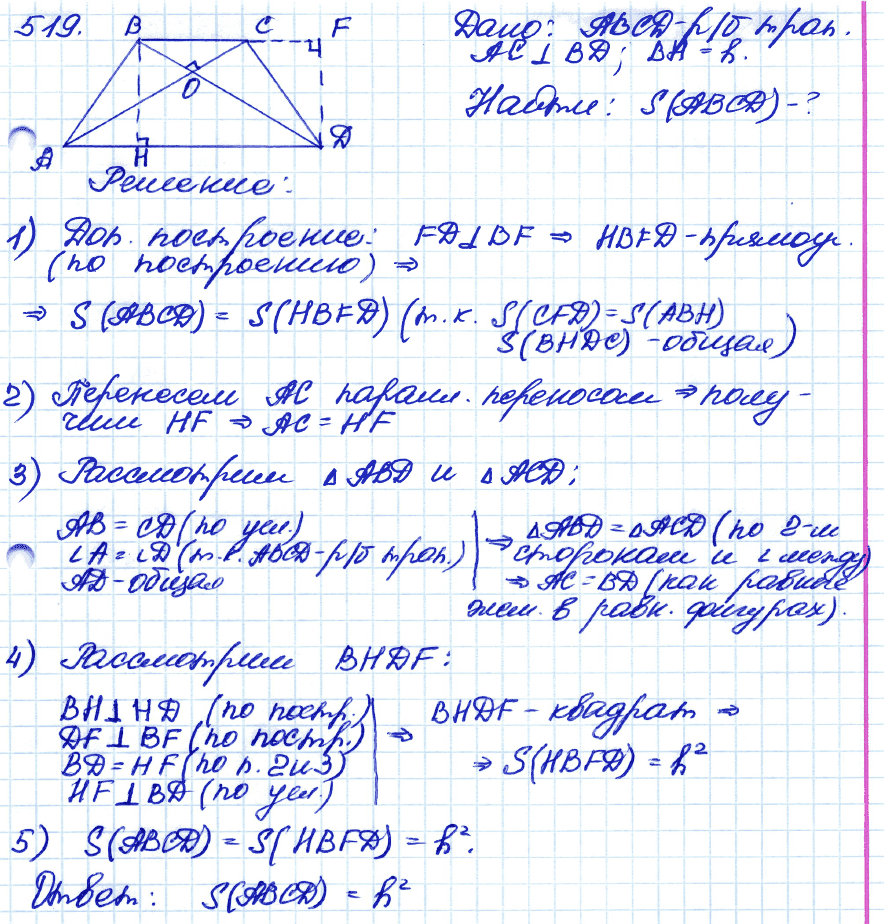 519. B C F
O
A H D
Дано: ABCD-р/б трап.
AC ⊥ BD; BH = h.
Найти: S(ABCD) - ?
Решение:
1) Доп. построение: FD⊥BF ⇒ HBFD-прямоуг.
(по построению) ⇒
⇒ S(ABCD) = S(HBFD) (т.к. S(CFD) = S(ABH)
S(BHDC) - общая)
2) Перенесем AC паралл. переносом ⇒ полу-
чим HF ⇒ AC = HF
3) Рассмотрим △ABD и △ACD;
AB = CD (по усл.)
∠A = ∠D (т.к. ABCD-р/б трап.)
AD-общая
⇒ △ABD = △ACD (по 2-м
сторонам и ∠ между)
⇒ AC = BD (как равные
элем. в равн. фигурах).
4) Рассмотрим BHDF:
BH⊥HD (по постр.)
DF⊥BF (по постр.)
BD = HF (по п. 2 и 3)
HF⊥BD (по усл.)
⇒ BHDF - квадрат ⇒
⇒ S(HBFD) = h²
5) S(ABCD) = S(HBFD) = h².
Ответ: S(ABCD) = h²